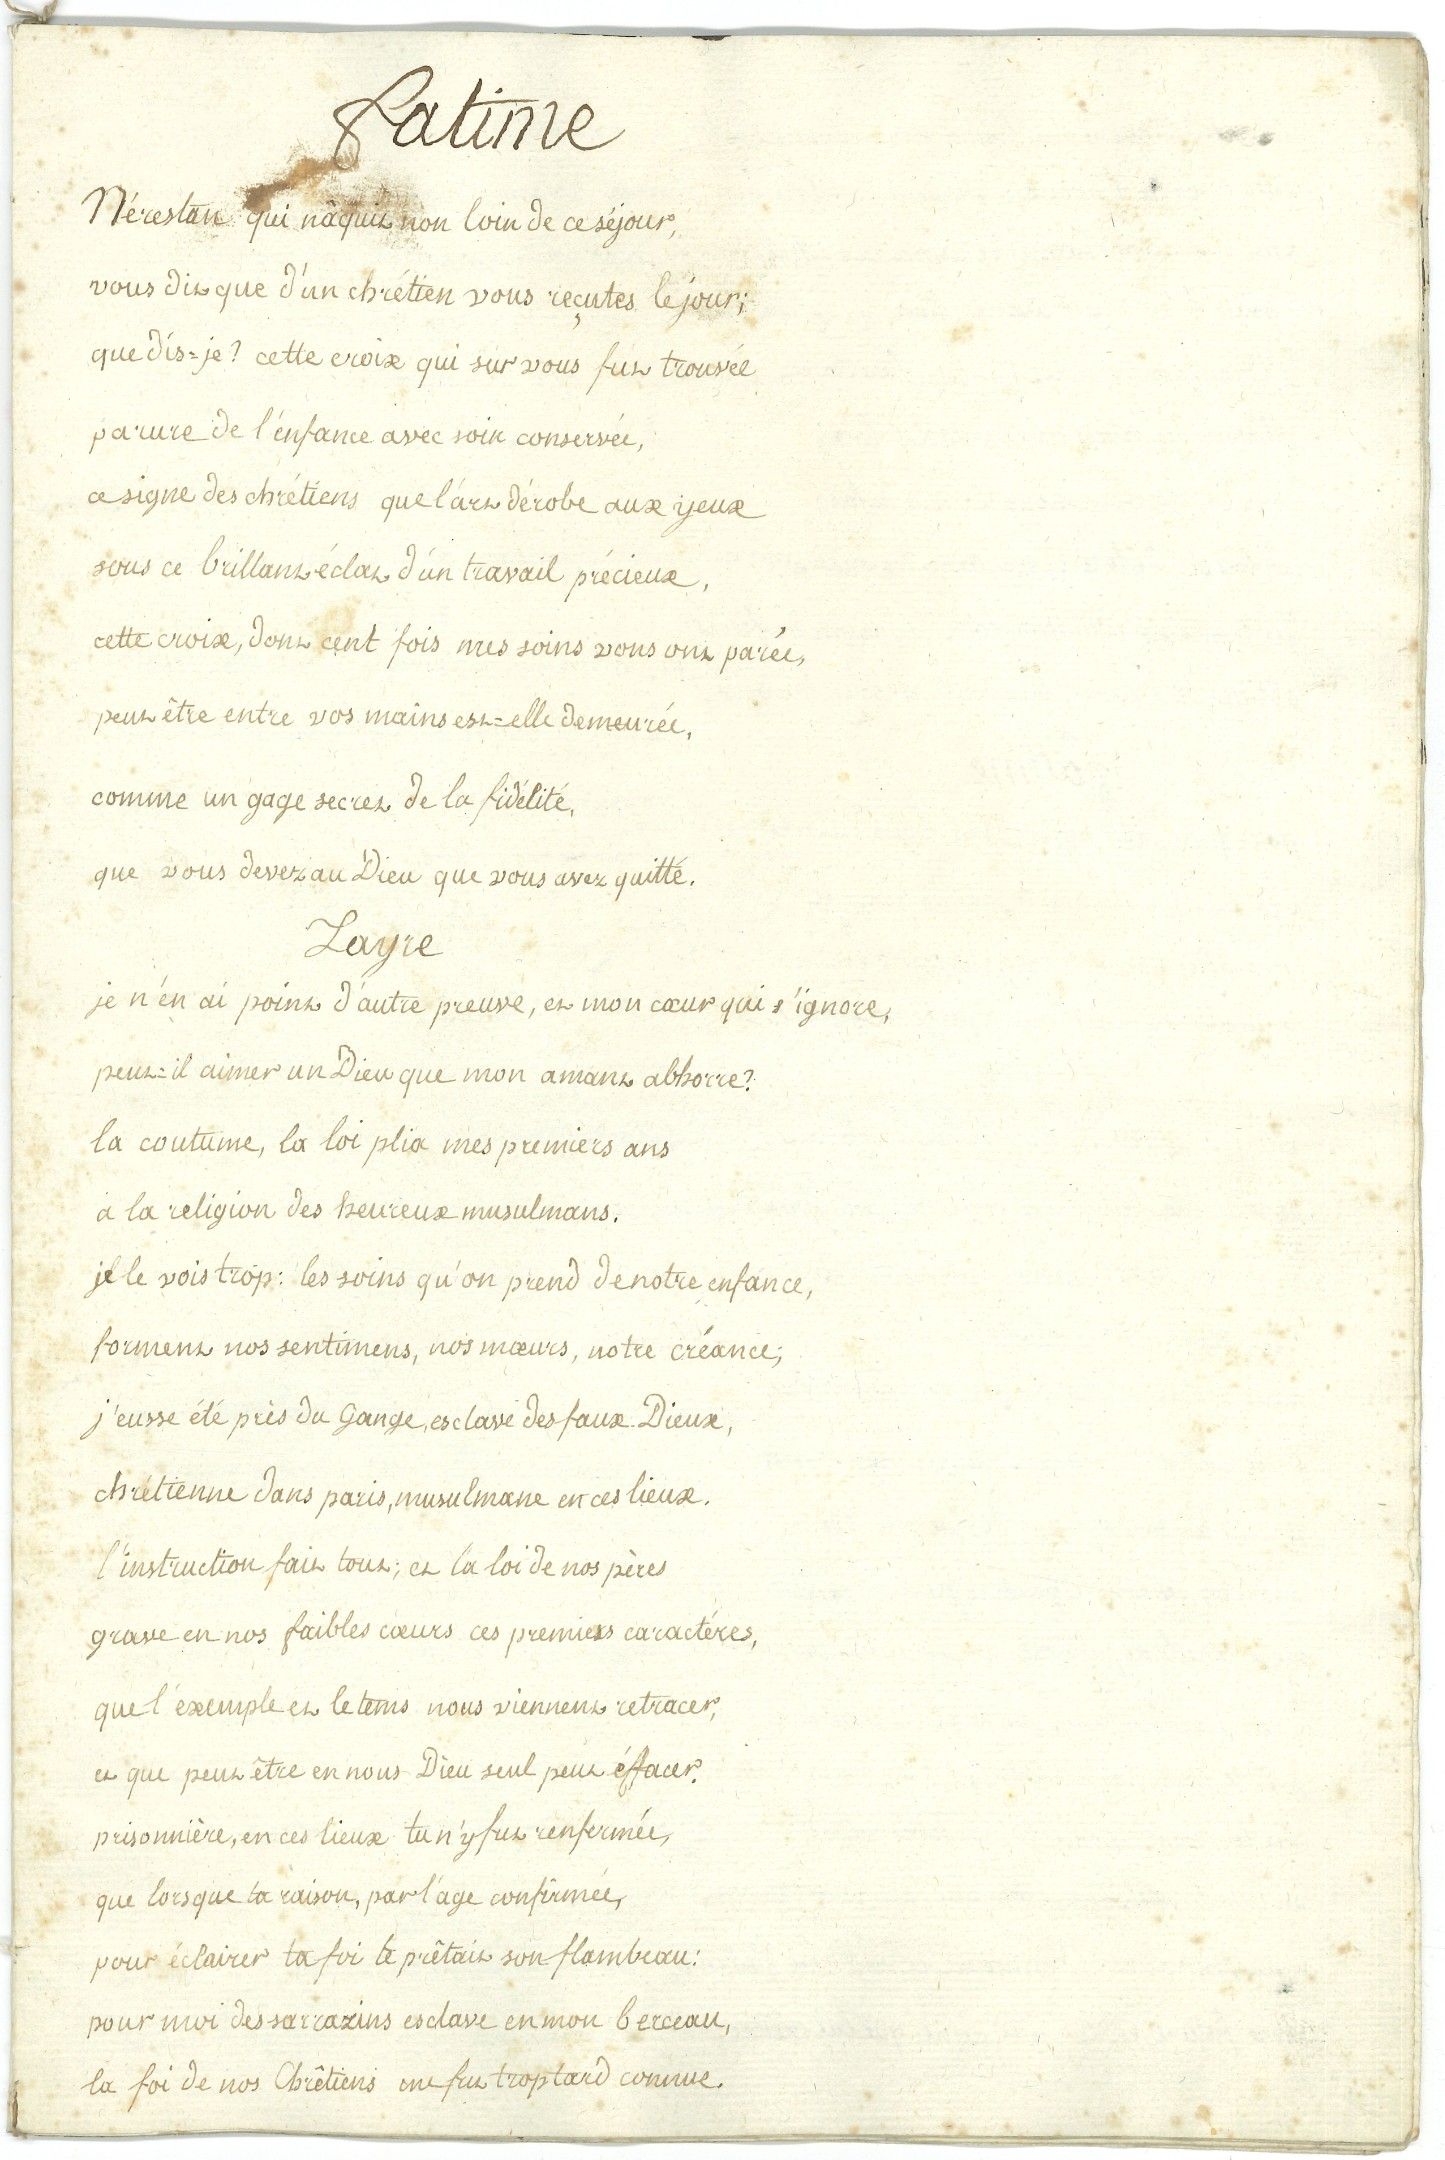 fatime
Nérestan qui nâquit non loin de ce séjour,
vous dit que d'un chrétien vous reçutes le jour;
que dis=je? cette croix qui sur vous fut trouvée
parure de l'énfance avec soin conservée,
ce signe des chrétiens que l'árt dérobe aux yeux
sous ce brillant éclat d'ún travail précieux,
cette croix, dont cent fois mes soins vous ont parée,
peut être entre vos mains est=elle demeurée,
comme un gage secret de la fidélité,
que vous devez au Dieu que vous avez quitté.
Zayre
je n'én ai point d'autre preuve, et mon cœur qui s'ignore,
peut=il aimer un Dieu que mon amant abhorre?
la coutume, la loi plia mes premiers ans
à la religion des heureux musulmans.
je le vois trop: les soins qu'on prend de notre enfance,
forment nos sentimens, nos mœurs, notre créance;
j'eusse été près du Gange, esclave des faux Dieux,
chrétienne dans paris, musulmane en ces lieux.
l'instruction fait tout; et la loi de nos pères
grave en nos faibles cœurs ces premiers caractéres,
que l'éxemple et le tems nous viennent retracer,
et que peut être en nous Dieu seul peut éffacer.
prisonnière, en ces lieux tu n'y fut renfermée,
que lorsque ta raison, par l'age confirmée,
pour éclairer ta foi te prêtait son flambeau:
pour moi des sarrazins esclave en mon berceau,
la foi de nos Chrêtiens me fut trop tard connue.